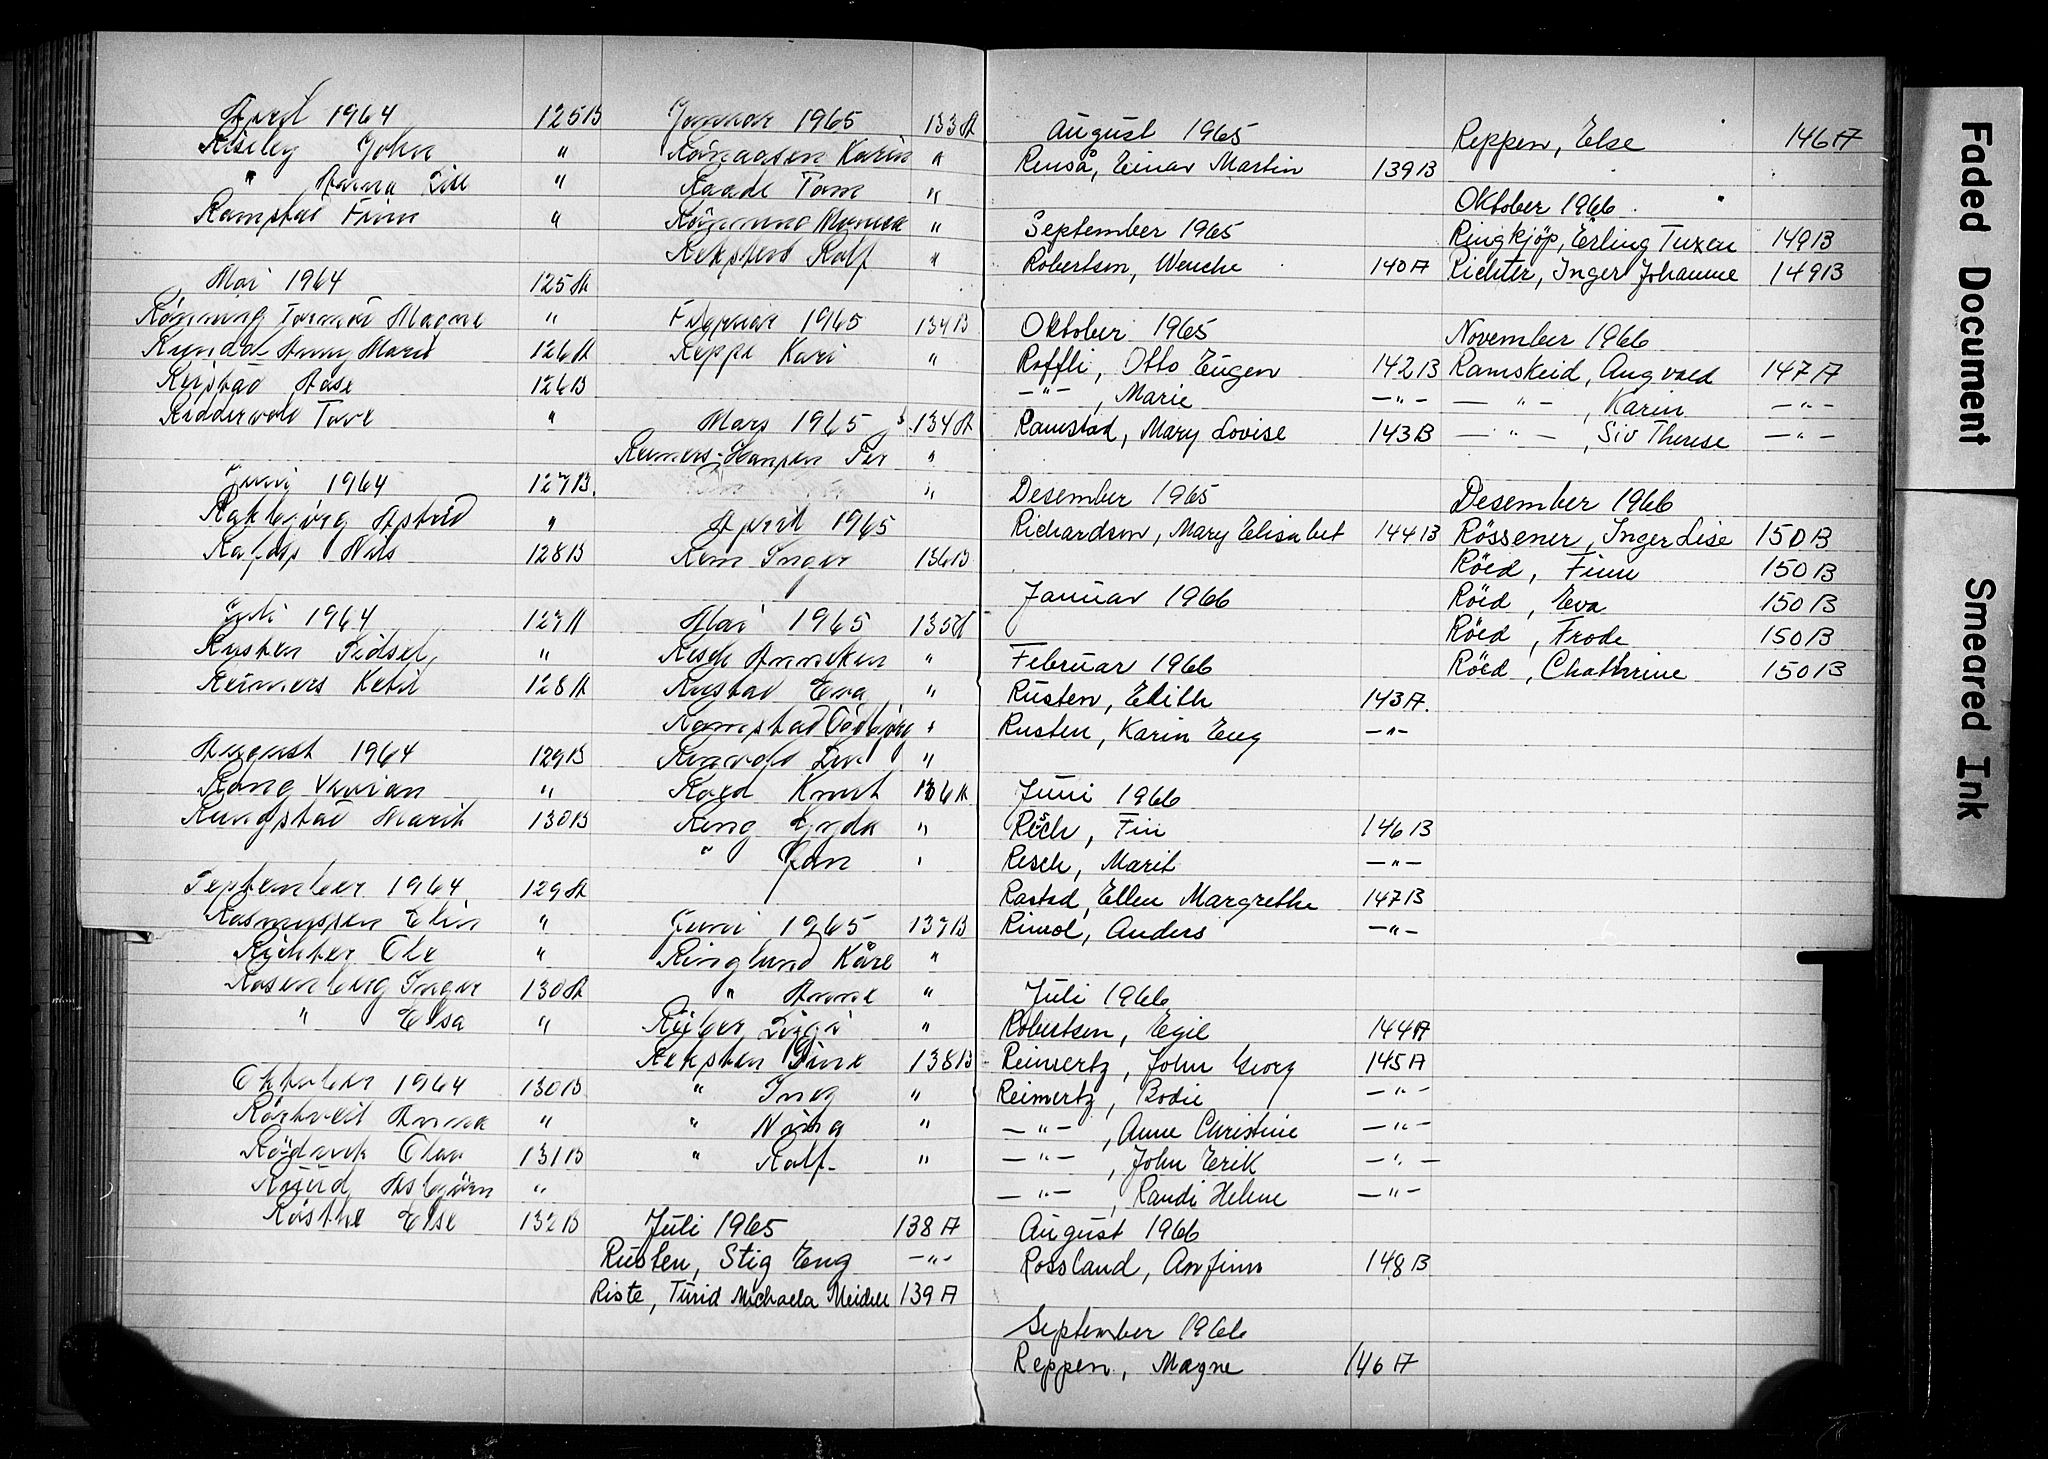 April 1964 125B
Riseley John "
" Anna Lise "
Ramstad Finn "
Mai 1964 125A
Rönning Tormod Magne "
Rundal Anny Marie 126A
Reistad Åse 126B
Ridderwold Tove "
Juni 1964 127B.
Astrid "
Nils 128B
Juli 1964 127A
Rusten Sidsel, "
Reimers Ketil 128A
August 1964 129B
Rong Vivian "
Rundstad Marit 130B
September 1964 129A
Rasmussen Elin "
Richter Ole "
Rosenberg Inger 130A
" Elsa "
Oktober 1964 130B
Rörtveit Anna "
Rödvik Olav 131B
Asbjörn "
Røsthe Else 132B
Januar 1965 133A
Karin "
Raade Tom "
"
Reksten Ralf "
Februar 1965 134B
Reppe Kari "
Mars 1965 134A
Reimers-Hansen Per "
"
April 1965
Rem Inger 136B
Mai 1965 135A
Resch Anneken "
Rustad Eva "
Ramstad "
Liv "
Roed Knut 136A
Ring Gyda "
" Jan "
Juni 1965 137B
Ringlund Kåre "
" Anne "
Rieber "
Reksten Line 138B
" Ing "
" Nina "
" Ralf "
Juli 1965 138A
Rusten, Stig Eng -"-
Riste, Turid Michaela Meidell 139A
August 1965
Renså, Einar Martin 139B
September 1965
Robertsen, Wenche 140A
Oktober 1965
Roffli, Otto Eugen 142B
-"- , Marie -"-
Ramstad, Mary Lovise 143B
Desember 1965
Richardson, Mary Elisabet 144B
Januar 1966
Februar 1966
Rusten, Edith 143A.
Rusten, Karin Eng -"-
Juni 1966
Resch, Finn 146B
Resch, Marit -"-
Rastad, Ellen Margrethe 147B
Rimol, Anders -"-
Juli 1966
Robertsen, Egil 144A
Reimertz, John Georg 145A
Reimertz, Bodil -"-
-"- , Anne Christine -"-
-"- , John Erik -"-
-"- , Randi Helene -"-
August 1966
Rossland, Arnfinn 148B
September 1966
Reppen, Magne 146A
Reppen, Else 146A
Oktober 1966
Ringkjöp, Erling Tuxen 149B
Richter, Inger Johanne 149B
November 1966
Ramskeid, Angvald 147A
-"- , Karin -"-
-"- , Siv Therese -"-
Desember 1966
Rössener, Inger Lise 150B
Röed, Finn 150B
Röed, Eva 150B
Röed, Frode 150B
Röed, Chathrine 150B
Faded Document
Smeared Ink